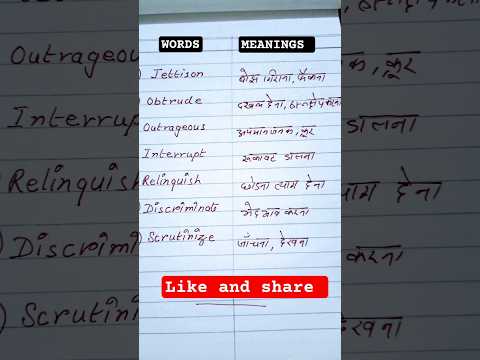 WORDS MEANINGS
Jettison बोझ गिराना, फेंकना
Obtrude दखल देना, हस्तक्षेप करना
Outrageous अपमानजनक, क्रूर
Interrupt रुकावट डालना
Relinquish छोडना त्याग देना
Discriminate भेदभाव करना
Scrutinize जाँचना, देखना
Like and share